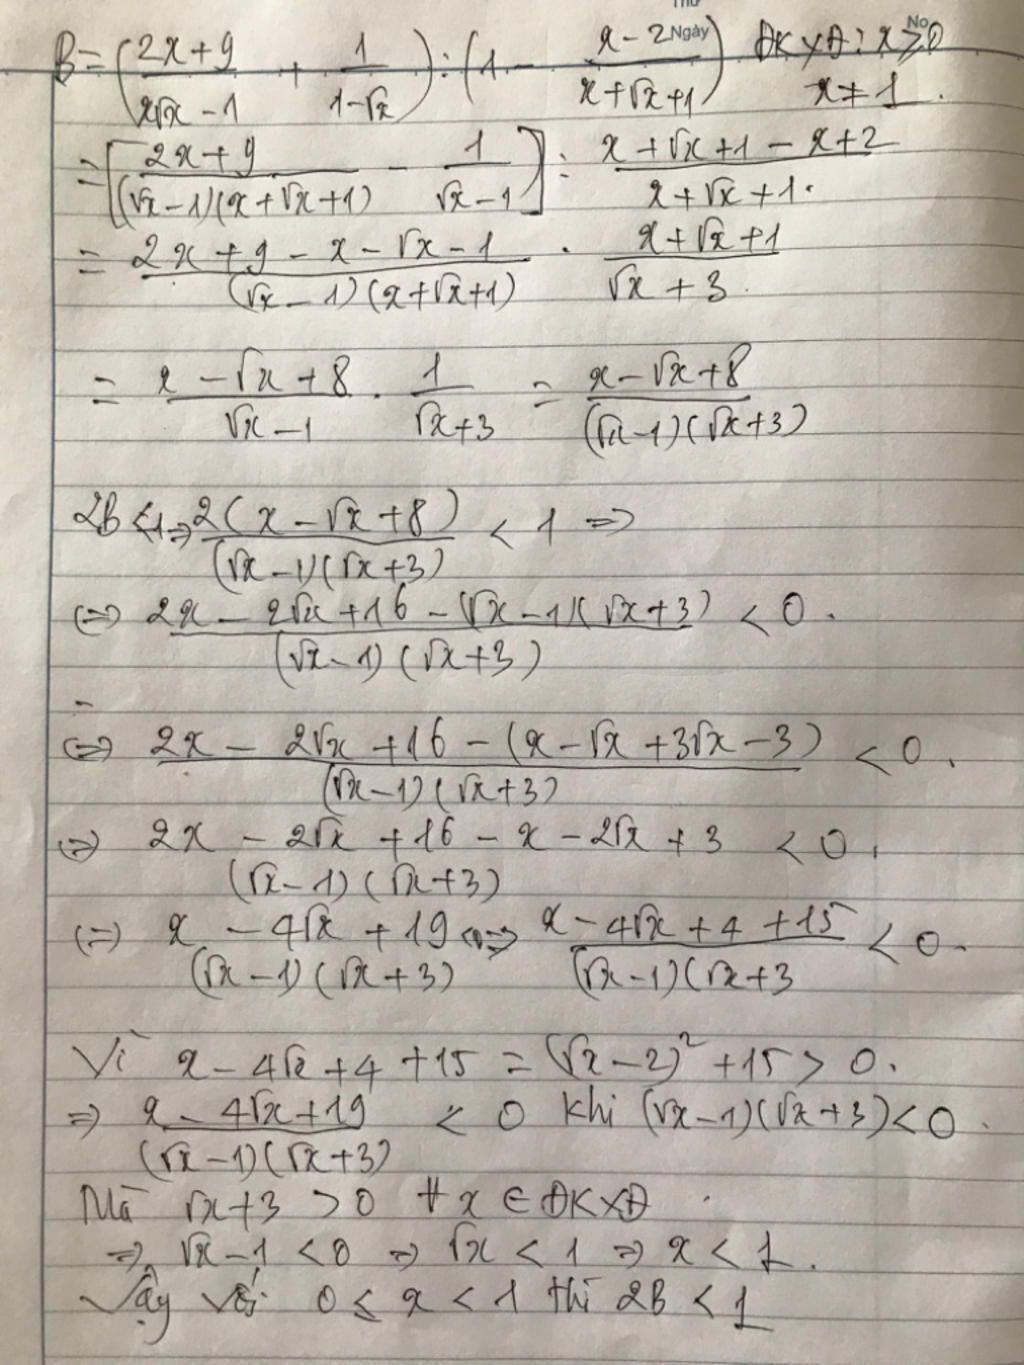 Thứ
Ngày
No
B = (2x+9 / x√x - 1 + 1 / 1-√x) : (1 - x-2 / x+√x+1) ĐKXĐ: x ≥ 0
x ≠ 1.
= [2x+9 / (√x-1)(x+√x+1) - 1 / √x-1] : x+√x+1-x+2 / x+√x+1.
= 2x+9-x-√x-1 / (√x-1)(x+√x+1) . x+√x+1 / √x+3.
= x-√x+8 / √x-1 . 1 / √x+3 = x-√x+8 / (√x-1)(√x+3)
2B<1 => 2(x-√x+8) / (√x-1)(√x+3) < 1 =>
(=) 2x-2√x+16-(√x-1)(√x+3) / (√x-1)(√x+3) < 0.
(=) 2x-2√x+16-(x-√x+3√x-3) / (√x-1)(√x+3) < 0.
(=) 2x-2√x+16-x-2√x+3 / (√x-1)(√x+3) < 0.
(=) x-4√x+19 / (√x-1)(√x+3) <=> x-4√x+4+15 / (√x-1)(√x+3 < 0.
Vì x-4√x+4+15 = (√x-2)² + 15 > 0.
=> x-4√x+19 / (√x-1)(√x+3) < 0 khi (√x-1)(√x+3) < 0.
Mà √x+3 > 0 ∀ x ∈ ĐKXĐ.
=> √x-1 < 0 => √x < 1 => x < 1.
Vậy với 0 ≤ x < 1 thì 2B < 1